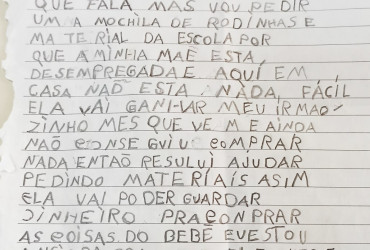 QUE FALA MAS VOU PEDIR
UMA MOCHILA DE RODINHAS E
MATERIAL DA ESCOLA POR
QUE A MINHA MAE ESTA,
DESEMPREGADA E AQUÍ EM,
CASA NAÕ ESTA NADA, FÁCIL
ELA VAI GANI-VAR MEU IRMAO-
ZINHO MES QUE VEM E AINDA
NAÕ CONSE GUIU COMPRAR
NADA ENTAÕ RESULUI AJUDAR
PEDINDO MATERIAIS ASIM
ELA VAI PODER GUARDAR
DINHEIRO PRA COMPRAR
AS COISAS DO BEBÊ EU ESTOU